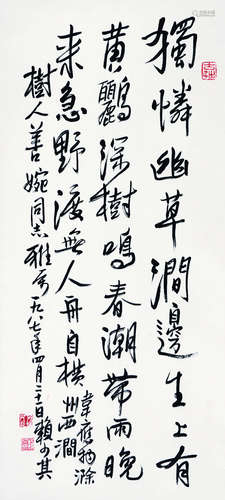 獨憐幽草澗邊生上有
黄鸝深樹鳴春潮帶雨晚
来急野渡無人舟自橫
韋應物滁
州西澗
樹人善婉同志雅属一九八七年四月二十日賴少其